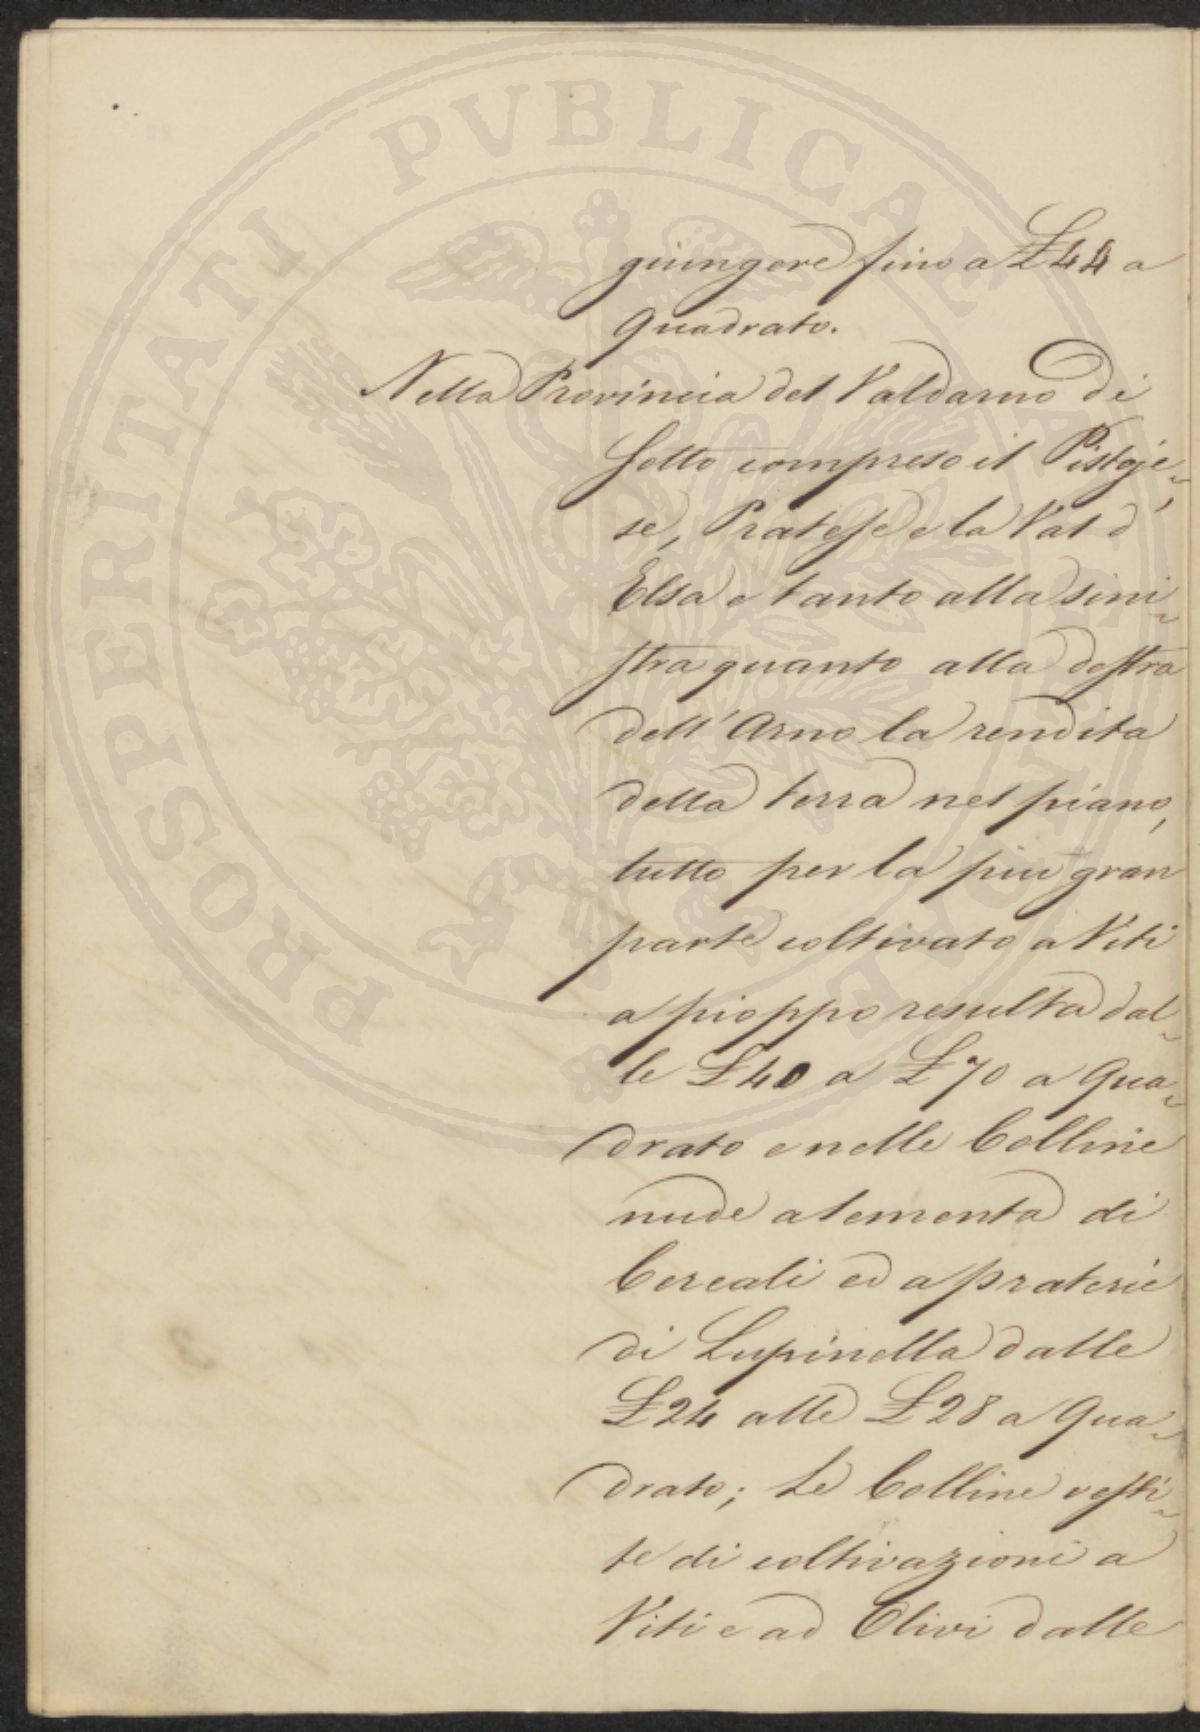 PROSPERITATI PVBLICAE
giungere fino a £ 44 a
Quadrato.
Nella Provincia del Valdarno di
Sotto compreso il Pistoje-
se, Pratese e la Val d'
Elsa e tanto alla sini-
stra quanto alla destra
dell'Arno la rendita
della terra nel piano,
tutto per la piu gran
parte coltivato a Viti
a pioppo resulta dal-
le £ 40 a £ 70 a Qua-
drato e nelle Colline
nude a sementa di
Cereali ed a praterie
di Lupinella dalle
£ 24 alle £ 28 a Qua-
drato; Le Colline vesti-
te di coltivazioni a
Viti e ad Olivi dalle